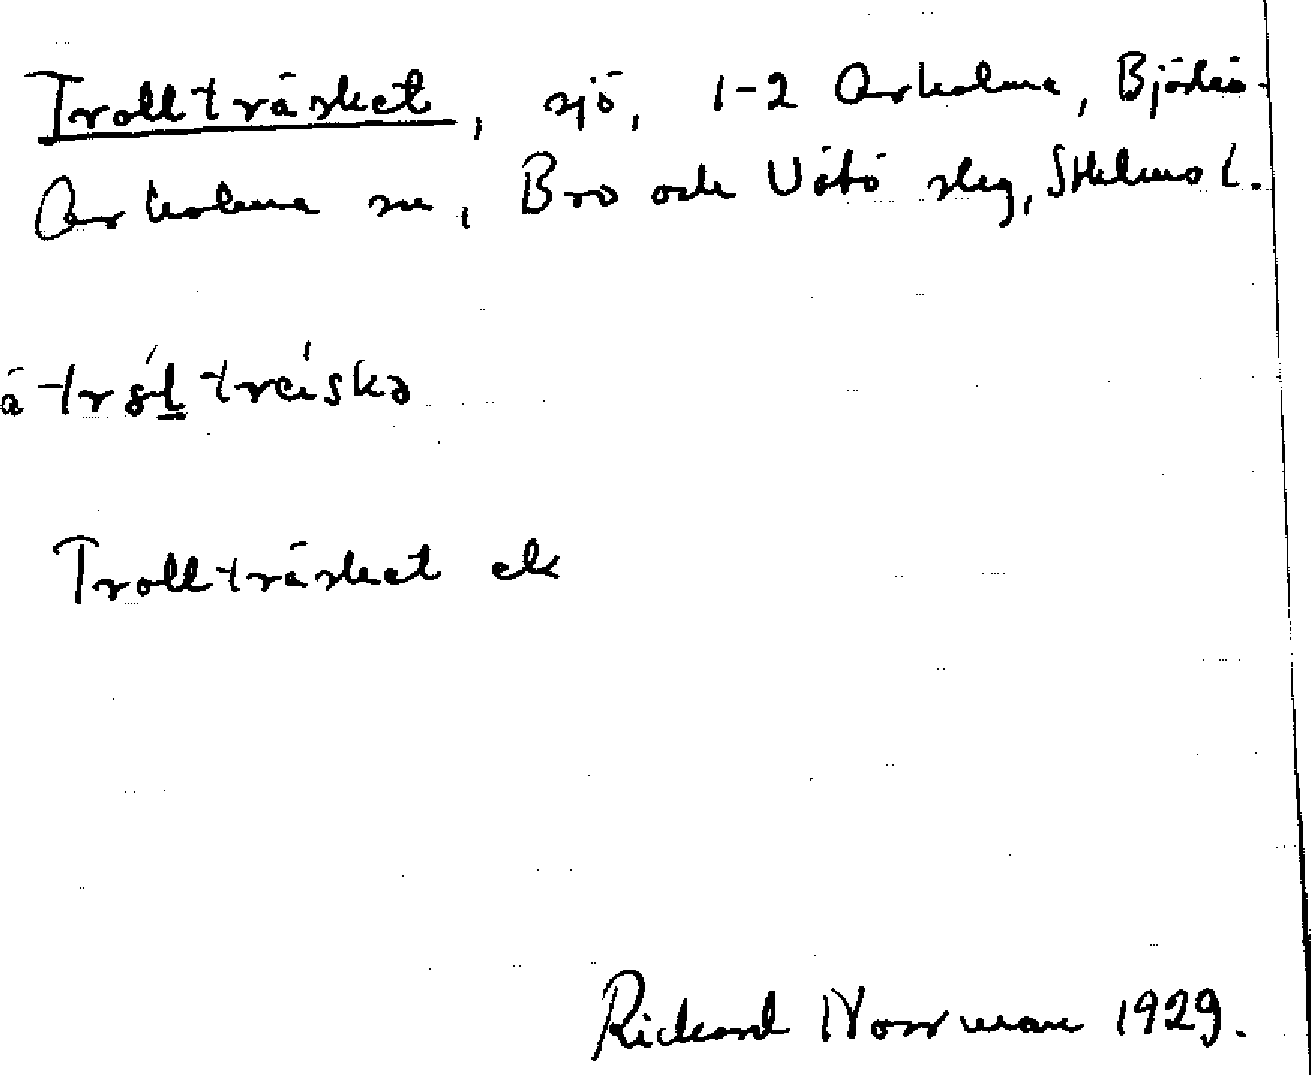 Trollträsket, sjö, 1-2 Arholma, Björkö-
Arholma sn, Bro och Vätö slg, Sthlms l.
å trö́l träiskə
Trollträsket ek
Rickard Norrman 1929.